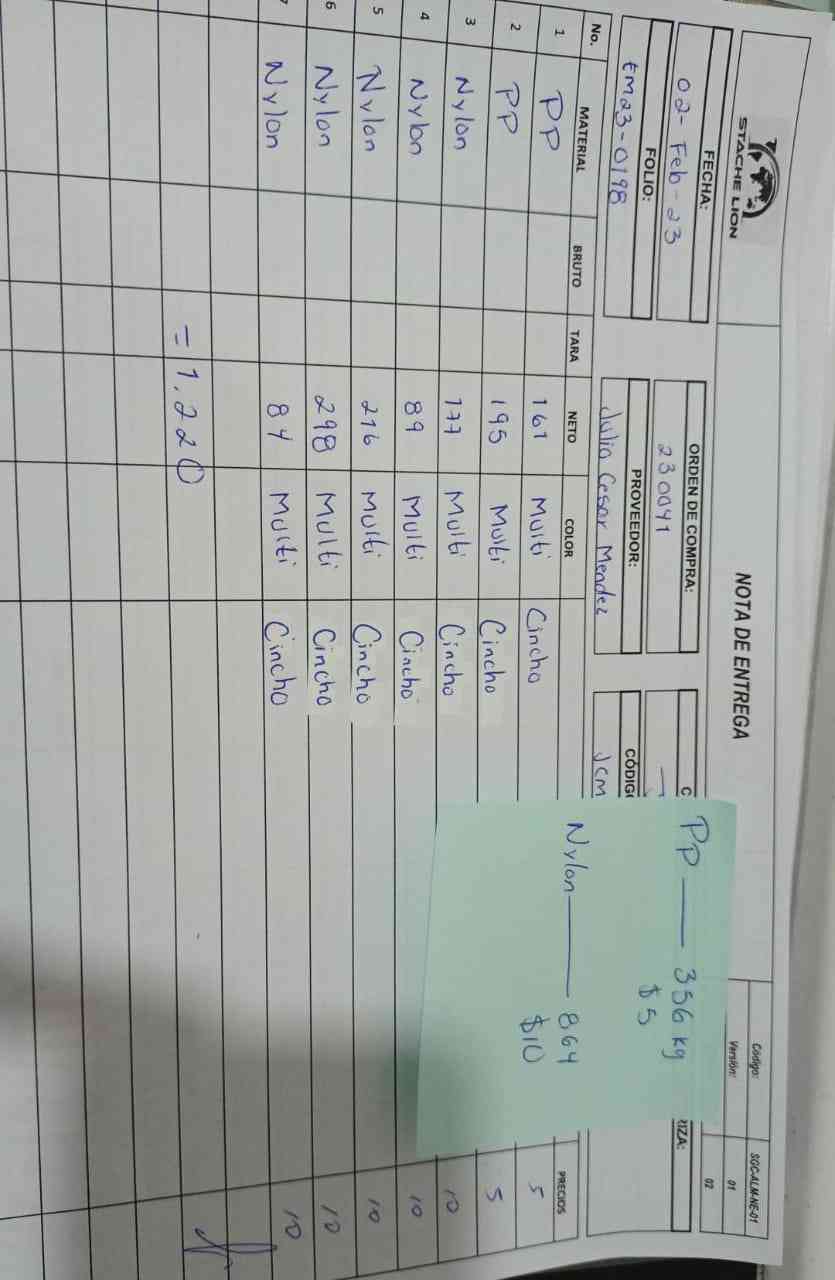 STACHE LION
NOTA DE ENTREGA
Código: SGC-ALM-NE-01
Versión: 01
02
FECHA:
02-Feb-23
ORDEN DE COMPRA:
230041
FOLIO:
EM23-0198
PROVEEDOR:
Julio Cesar Mendez
CÓDIG
JCM
RIZA:
PP — 356 kg
$5
Nylon — 864
$10
No. MATERIAL BRUTO TARA NETO COLOR PRECIOS
1 PP 161 Multi Cincho 5
2 PP 195 Multi Cincho 5
3 Nylon 177 Multi Cincho 10
4 Nylon 89 Multi Cincho 10
5 Nylon 216 Multi Cincho 10
6 Nylon 298 Multi Cincho 10
7 Nylon 84 Multi Cincho 10
= 1,220